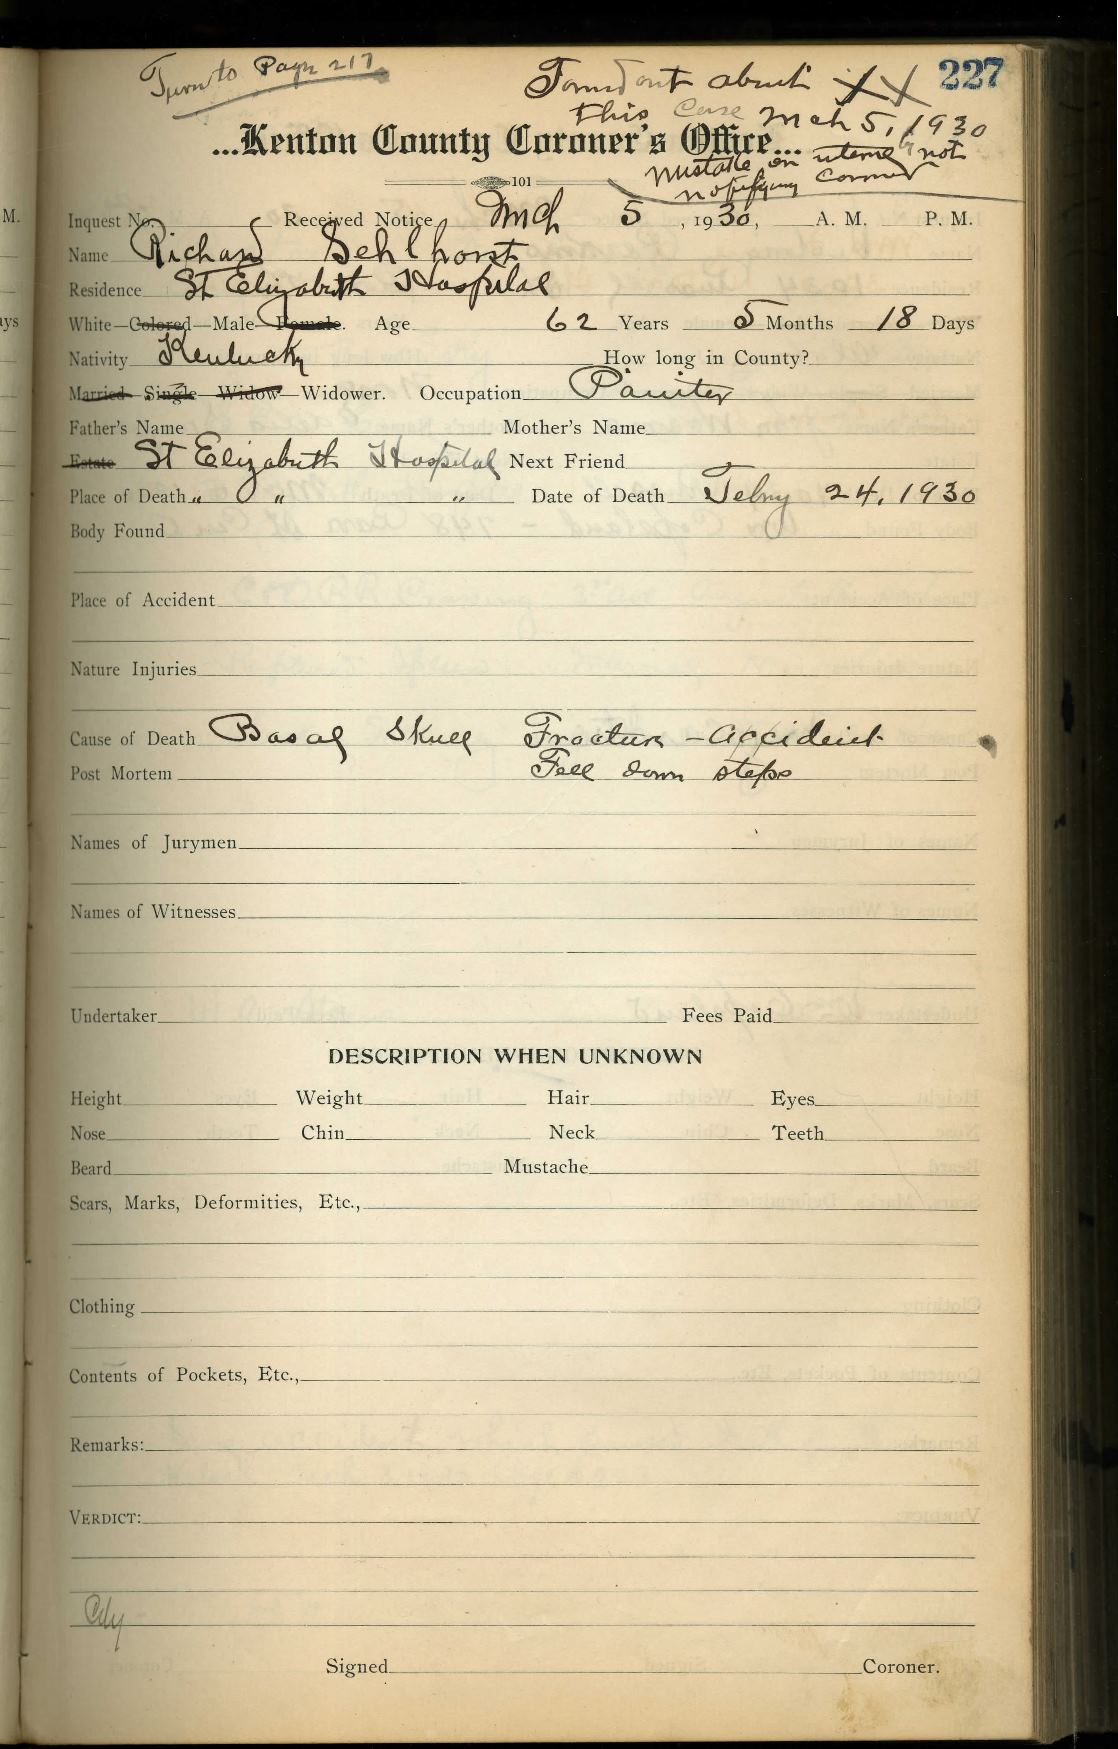 Turn to Page 217
Found out about XX 227
this case Mch 5, 1930
...Kenton County Coroner's Office...
Mistake on interne not
notifying Coroner
101
Inquest No. Received Notice Mch 5, 1930, A. M. P. M.
Name Richard Sehlhorst
Residence St Elizabeth Hospital
White—Colored—Male—Female. Age 62 Years 5 Months 18 Days
Nativity Kentucky How long in County?
Married—Single—Widow—Widower. Occupation Painter
Father's Name Mother's Name
Estate St Elizabeth Hospital Next Friend
Place of Death " " " Date of Death Febry 24, 1930
Body Found
Place of Accident
Nature Injuries
Cause of Death Basal Skull Fracture - accident
Post Mortem Fell down steps
Names of Jurymen
Names of Witnesses
Undertaker Fees Paid
DESCRIPTION WHEN UNKNOWN
Height Weight Hair Eyes
Nose Chin Neck Teeth
Beard Mustache
Scars, Marks, Deformities, Etc.,
Clothing
Contents of Pockets, Etc.,
Remarks:
VERDICT:
City
Signed Coroner.